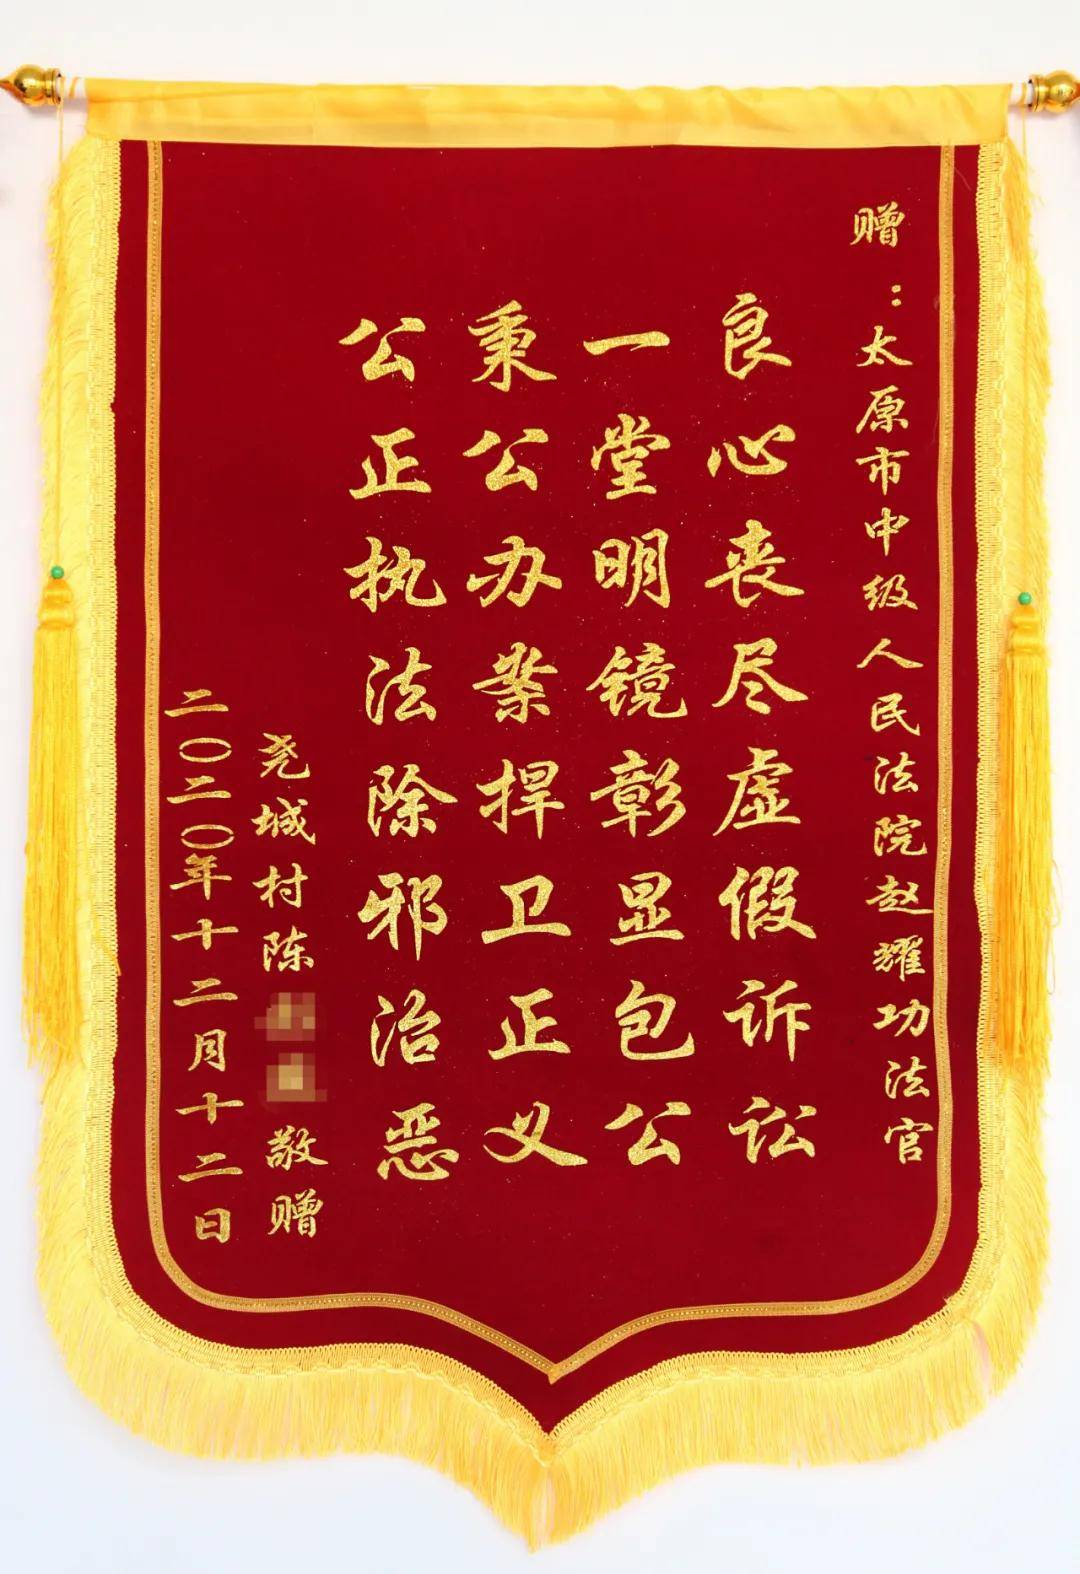 赠：太原市中级人民法院赵耀功法官
良心丧尽虚假诉讼
一堂明镜彰显包公
秉公办案捍卫正义
公正执法除邪治恶
尧城村陈 敬赠
二〇二〇年十二月十二日